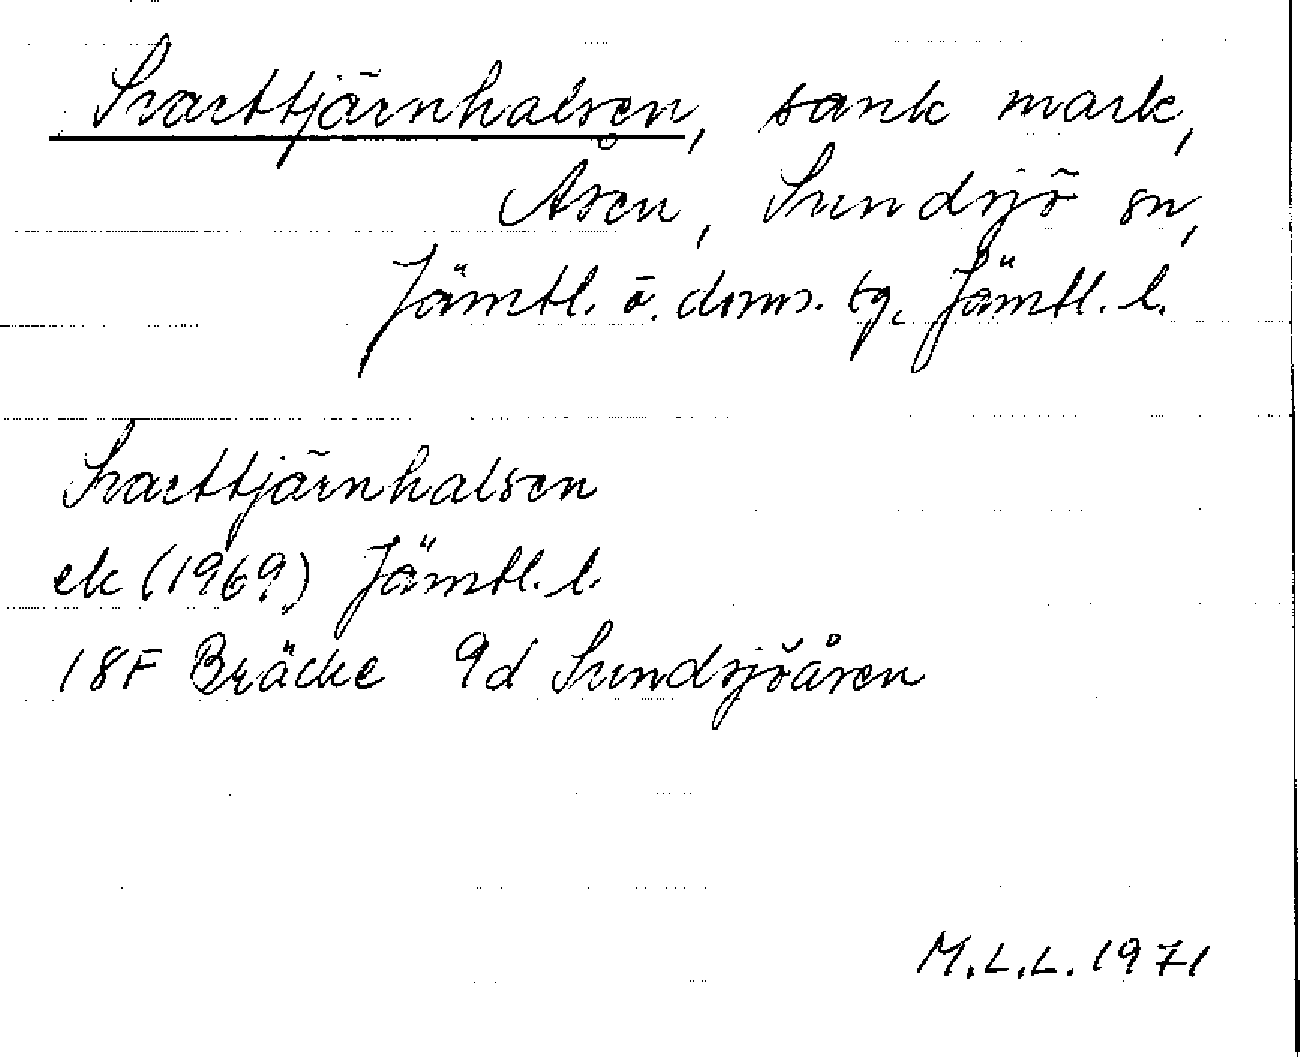 Svarttjärnhalsen, sank mark,
Åsen, Sundsjö sn,
Jämtl. ö. doms. tg. Jämtl. l.
Svarttjärnhalsen
ek (1969) Jämtl. l.
18F Bräcke 9d Sundsjöåsen
M.L.L. 1971